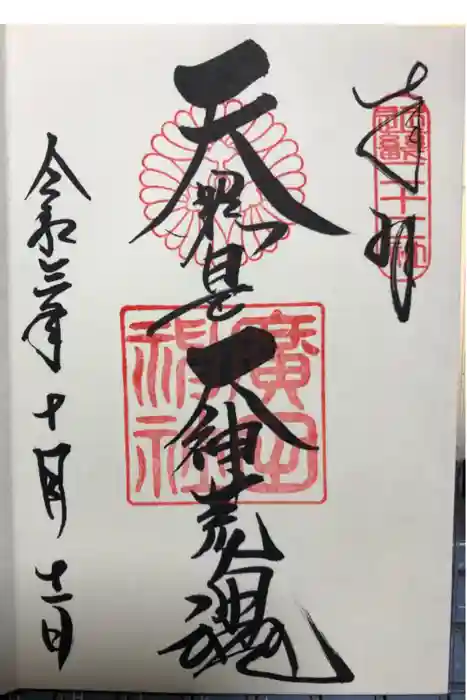 奉拝
二十二社
天照皇大神荒魂
廣田
神社
令和三年十月十一日